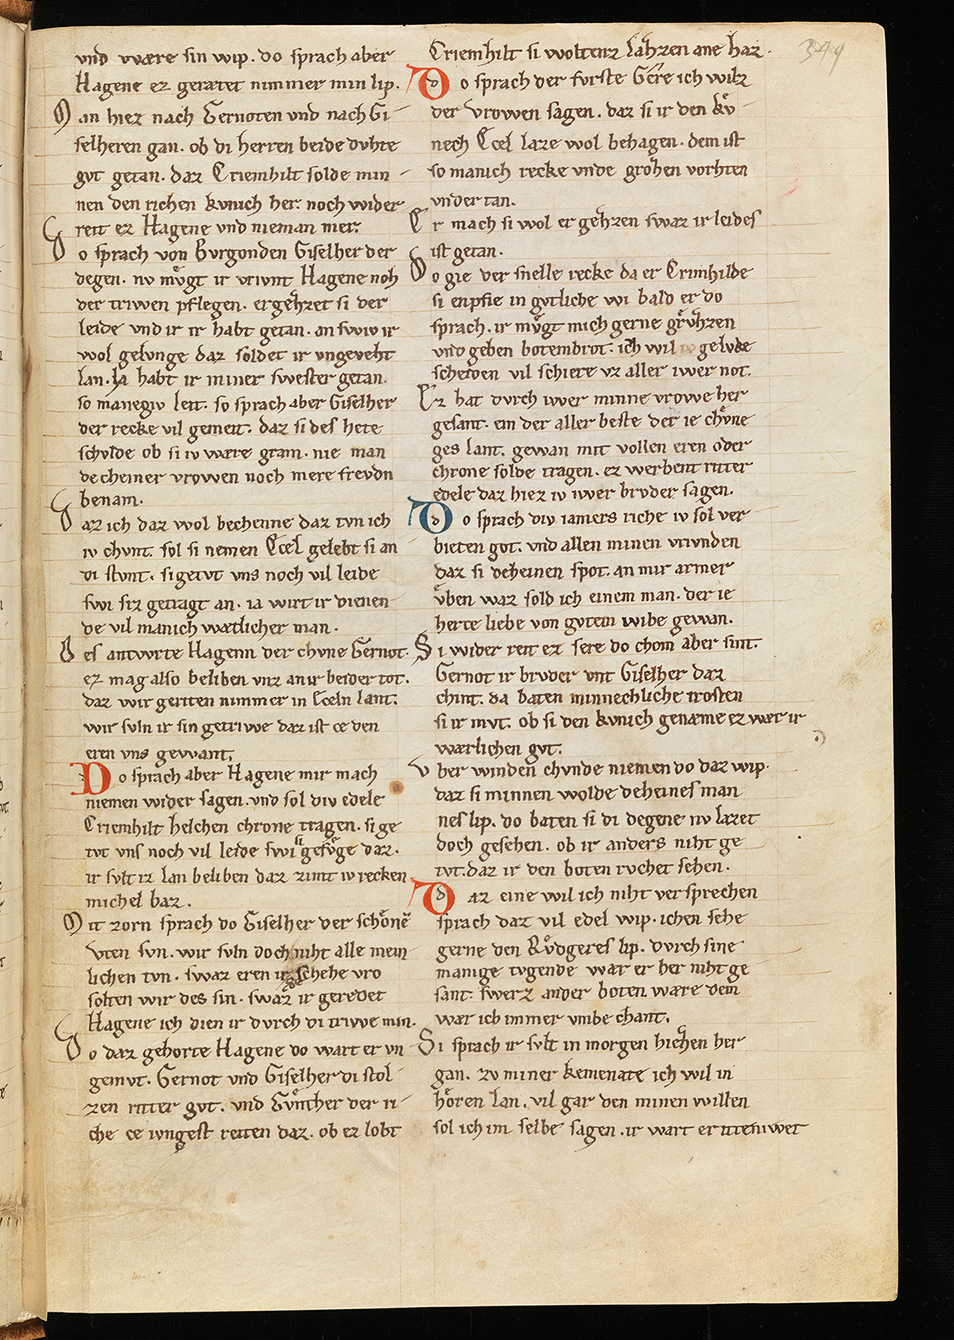 vnd wære sin wip. do sprach aber
Hagene ez geratet nimmer min lip.
Man hiez nach Gernoten vnd nach Gi-
selheren gan. ob di herren beide dvhte
gvt getan. daz Criemhilt solde min-
nen den richen kvnich her. noch wider
reit ez Hagene vnd nieman mer.
Do sprach von Bvrgonden Giselher der
degen. nv mvͦgt ir vrivnt Hagene noh
der triwen pflegen. ergehzet si der
leide vnd ir ir habt getan. an swiv ir
wol gelvnge daz soldet ir vngeveht
lan. Ja habt ir miner swester getan.
so manegiv leit. so sprach aber Giselher
der recke vil gemeit. daz si des hete
schvlde ob si iv wære gram. nie man
decheiner vrowen noch mere frevdn
benam.
Daz ich daz wol bechenne daz tvn ich
iv chvnt. sol si nemen Ecel gelebt si an
di stvnt. si getvt vns noch vil leide
swi siz getragt an. ia wirt ir dienen
de vil manich wætlicher man.
Des antwrte Hagenn der chvne Gernot.
ez mag also beliben vnz an ir beider tot.
daz wir geriten nimmer in Eceln lant.
wir svln ir sin getriwe daz ist ce den
eren vns gewant.
Do sprach aber Hagene mir mach
niemen wider sagen. vnd sol div edele
Criemhilt helchen chrone tragen. si ge
tvt vns noch vil leide swi si gefvͦge daz.
ir svlt iz lan beliben daz zimt iv recken
michel baz.
Mit zorn sprach do Giselher der schoͤnē
Vten svn. wir svln doch niht alle mein
lichen tvn. swaz eren ir schehe vro
solten wir des sin. swaz ir geredet
Hagene ich dien ir dvrch di triwe min.
Do daz gehorte Hagene do wart er vn
gemvt. Gernot vnd Giselher di stol
zen ritter gvt. vnd Gvͦnther der ri-
che ce ivngest reiten daz. ob ez lobt
Criemhilt si woltenz lahzen ane haz.
Do sprach der fvrste Gere ich wilz
der vrowen sagen. daz si ir den kv
nech Ecel laze wol behagen. dem ist
so manich recke vnde grohen vorhten
vnder tan.
Er mach si wol er gehzen swaz ir leides
ist getan.
Do gie der snelle recke da er Crimhilde
si enpfie in gvtliche wi bald er do
sprach. ir mvͦgt mich gerne grvͦhzen
vnd geben botembrot. ich wil gelvke
scheiden vil schiere vz aller iwer not.
Ez hat dvrch iwer minne vrowe her
gesant. ein der aller beste der ie chvͦne
ges lant. gewan mit vollen eren oder
chrone solde tragen. ez werbent ritter
edele daz hiez iv iwer brvder sagen.
Do sprach div iamers riche iv sol ver
bieten got. vnd allen minen vrivnden
daz si deheinen spot. an mir armer
vͦben waz sold ich einem man. der ie
herte liebe von gvtem wibe gewan.
Si wider reit ez sere do chom aber sint.
Gernot ir brvder vnt Giselher daz
chint. da baten minnechliche trosten
si ir mvt. ob si den kvnich genæme ez wær ir
wærlichen gvt.
Vber winden chvnde niemen do daz wip.
daz si minnen wolde deheines man
nes lip. do baten si di degene nv lazet
doch gesehen. ob ir anders niht ge
tvt. daz ir den boten rvchet sehen.
Daz eine wil ich niht versprechen
sprach daz vil edel wip. ichen sehe
gerne den Rvͦdgeres lip. dvrch sine
manige tvgende wær er her niht ge
sant. swerz ander boten wære dem
wær ich immer vmbe chant.
Si sprach ir svlt in morgen hichen her
gan. zv miner kemenate ich wil in
hoͤren lan. vil gar den minen willen
sol ich im selbe sagen. ir wart er